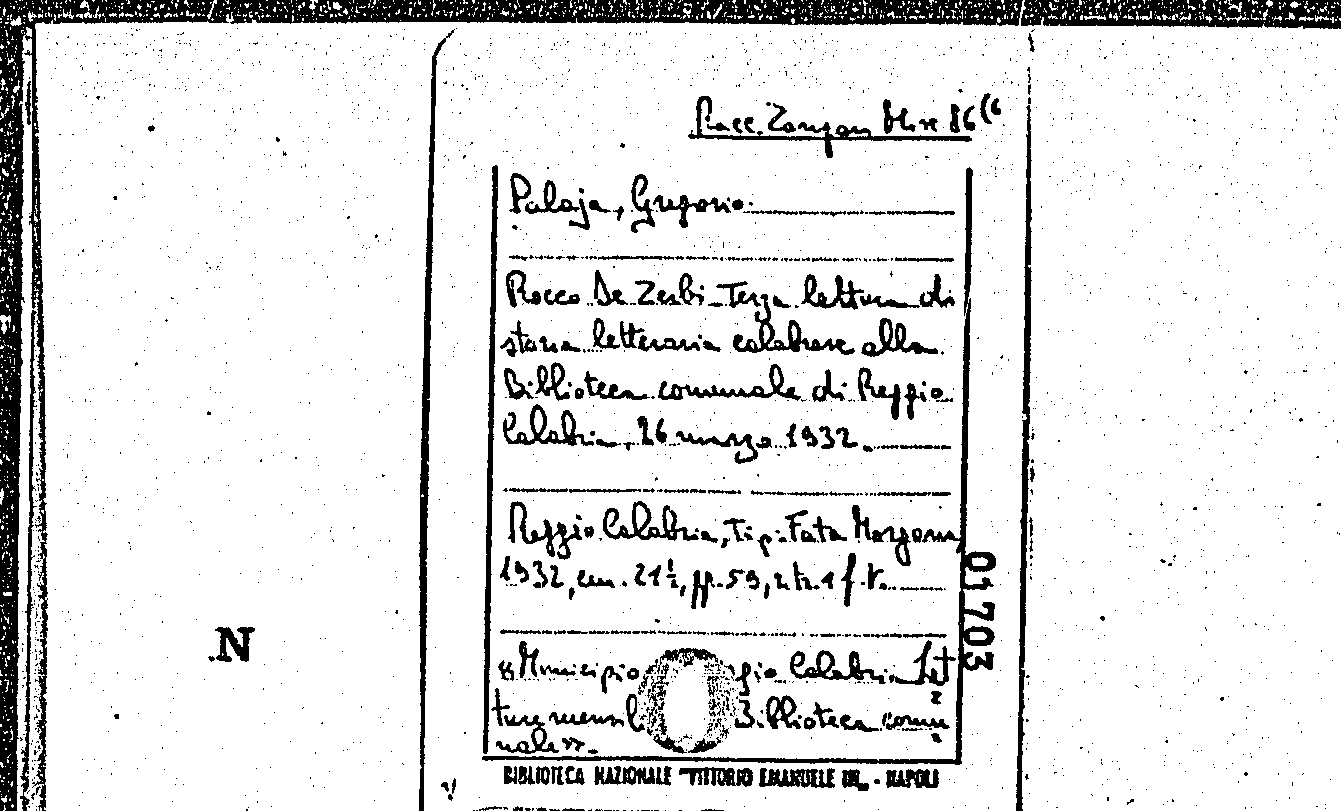 Racc. Zangari Misc 86 (6
Palaja, Gregorio
Rocco De Zerbi - Terza lettura di
storia letteraria calabrese alla
Biblioteca comunale di Reggio
Calabria, 26 marzo 1932.
Reggio Calabria, Tip. Fata Morgana,
1932, cm. 21½, pp. 59, 1 f.t.
01703
N
«Municipio Reggio Calabria Let
ture mensil Biblioteca comu
nale».
BIBLIOTECA NAZIONALE "VITTORIO EMANUELE III" - NAPOLI